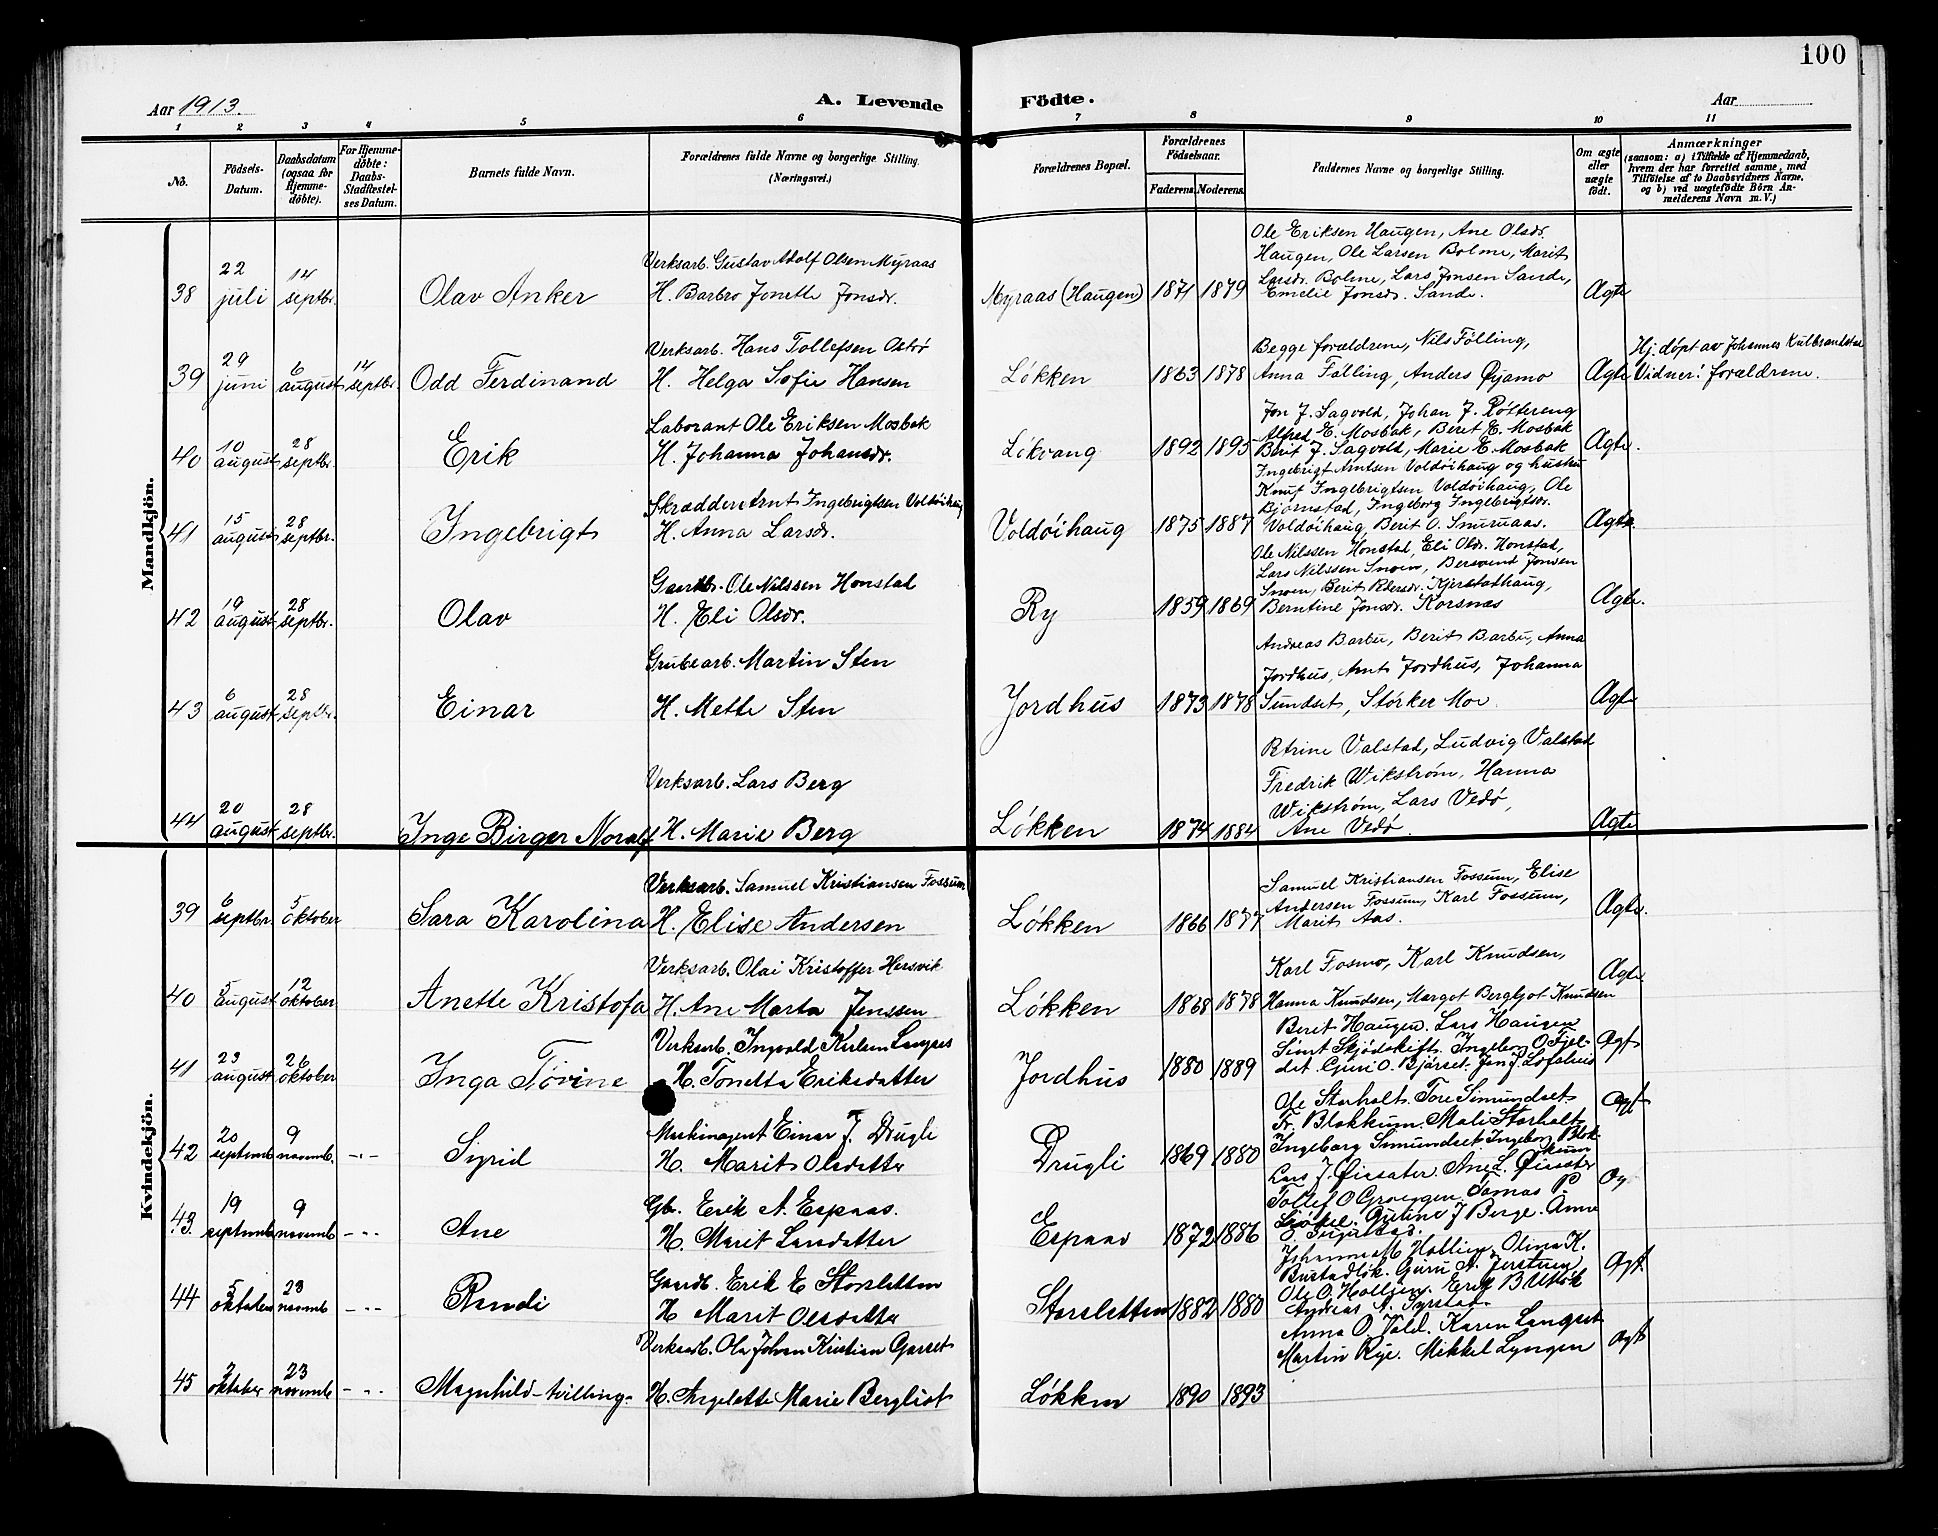 100
Aar 1913.
A. Levende Födte.
Aar
1 2 3 4 5 6 7 8 9 10 11
No.
Födsels-Datum.
Daabsdatum (ogsaa for Hjemme-döbte).
For Hjemme-döbte: Daabs-Stadfæstel-ses Datum.
Barnets fulde Navn.
Forældrenes fulde Navne og borgerlige Stilling. (Næringsvei.)
Forældrenes Bopæl.
Forældrenes Födselsaar.
Faderens. Moderens.
Faddernes Navne og borgerlige Stilling.
Om ægte eller uægte födt.
Anmærkninger
(saasom: a) i Tilfælde af Hjemmedaab, hvem der har forrettet samme, med Tilföielse af to Daabsvidners Navne, og b) ved uægtefödte Börn An-melderens Navn m. V.)
Mandkjön.
38 22 juli 14 septbr. Olav Anker
Verksarb. Gustav Adolf Olsen Myraas
H. Barbro Jonette Jonsdr.
Myraas (Haugen) 1871 1879
Ole Eriksen Haugen, Ane Olsdr.
Haugen, Ole Larsen Bolme, Marit
Larsdr. Bolme, Lars Jonsen Sande,
Emelie Jonsdr. Sande.
Ægte
39 29 juni 6 august 14 septbr. Odd Ferdinand
Verksarb. Hans Tollefsen Ostrø
H. Helga Sofie Hansen
Løkken 1863 1878
Begge forældrene, Nils Fölling,
Anna Fölling, Anders Øyamo
Ægte
Hj. døpt av Johannes Kulbrandstad
Vidner: forældrene.
40 10 august 28 septbr. Erik
Laborant Ole Eriksen Mosbak
H. Johanna Johansdr.
Løkvang 1892 1895
Jon J. Sagvold, Johan J. Røttereng
Alfred E. Mosbak, Beret E. Mosbak
Berit J. Sagvold, Marie E. Mosbak
Ægte.
41 15 august 28 septbr. Ingebrigt
Skrædder Arnt Ingebrigtsen Voldøihaug
H. Anna Larsdr.
Voldøihaug 1875 1887
Ingebrigt Arntsen Voldøihaug og hustru
Knut Ingebrigtsen Voldøihaug, Ole
Bjørnstad, Ingeborg Ingebrigtsdr.
Voldøihaug Berit O. Smuruaas.
Ægte.
42 19 august 28 septbr. Olav
Gaardbr. Ole Nilssen Honstad
H. Eli Olsdr.
Ry 1859 1869
Ole Nilssen Honstad, Eli Olsdr. Honstad,
Lars Nilssen Snoen, Bersvend Jonsen
Snoen, Berit Pedersdr. Kjerstadhaug,
Berntine Jonsdr. Korsnæs
Ægte.
43 6 august 28 septbr. Einar
Grubearb. Martin Sten
H. Mette Sten
Jordhus 1873 1878
Andreas Barbu, Berit Barbu, Anna
Jordhus, Arnt Jordhus, Johanna
Sundset, Størker Moe
Ægte
44 20 august 28 septbr. Inge Birger Noralf
Verksarb. Lars Berg
H. Marie Berg
Løkken 1874 1884
Petrine Valstad, Ludvig Valstad
Fredrik Wikstrøm, Hanna
Wikstrøm, Lars Vedø,
Ane Vedø.
Ægte
Kvindekjön.
39 6 septbr. 5 oktober Sara Karolina
Verksarb. Samuel Kristiansen Fossum
H. Elise Andersen
Løkken 1866 1877
Samuel Kristiansen Fossum, Elise
Andersen Fossum, Karl Fossum,
Marit Aas.
Ægte.
40 5 august 12 oktober Anette Kristofa
Verksarb. Olai Kristoffer Hersvik
H. Ane Marta Jenssen
Løkken 1868 1878
Karl Fosmo, Karl Knudsen,
Hanna Knudsen, Margot Bergljot Knudsen
Ægte
41 23 august 26 oktober Inga Tørine
Verksarb. Ingvald Langnes
H. Tonetta Eriksdatter
Jordhus 1880 1889
Beret Haugen. Lars Haugen
Ingeborg O. Fjel-
det. Guri O. Bjørset.
Ægt
42 20 septemb 9 novemb. -"- Sigrid
Maskinagent Einar J. Drugli
H. Marit Olsdatter
Drugli 1869 1880
Ole Storholt. Tore Simundset
Fr. Blokkum. Mali Storholt
Ingeborg Simundset Ingeborg Blok-
kum
Ægt
43 19 septemb 9 novemb -"- Ane
Gbr. Erik A. Espaas.
H. Marit Larsdatter
Espaas 1872 1886
Lars J. Øissæter. Ane L. Øissæter
Tollef O Tomas P
J Berge. Anne
Æg
44 5 oktober 23 novemb -"- Randi
Gaardb. Erik E Storsletten
H Marit Olsdatter
Storsletten 1882 1880
Johanna M Halljem. Olina K.
Ole O. Halljem. Erik B
Andreas
Ægt.
45 2 oktober 23 novemb -"- Magnhild - tvilling.
Verksarb. Ola Johan Kristian Garset
H. Angelette Marie Bergliot
Løkken 1890 1893
Anna O. Vold. Karen Langset
Martin Rye. Mikkel Lyngen
Ægt